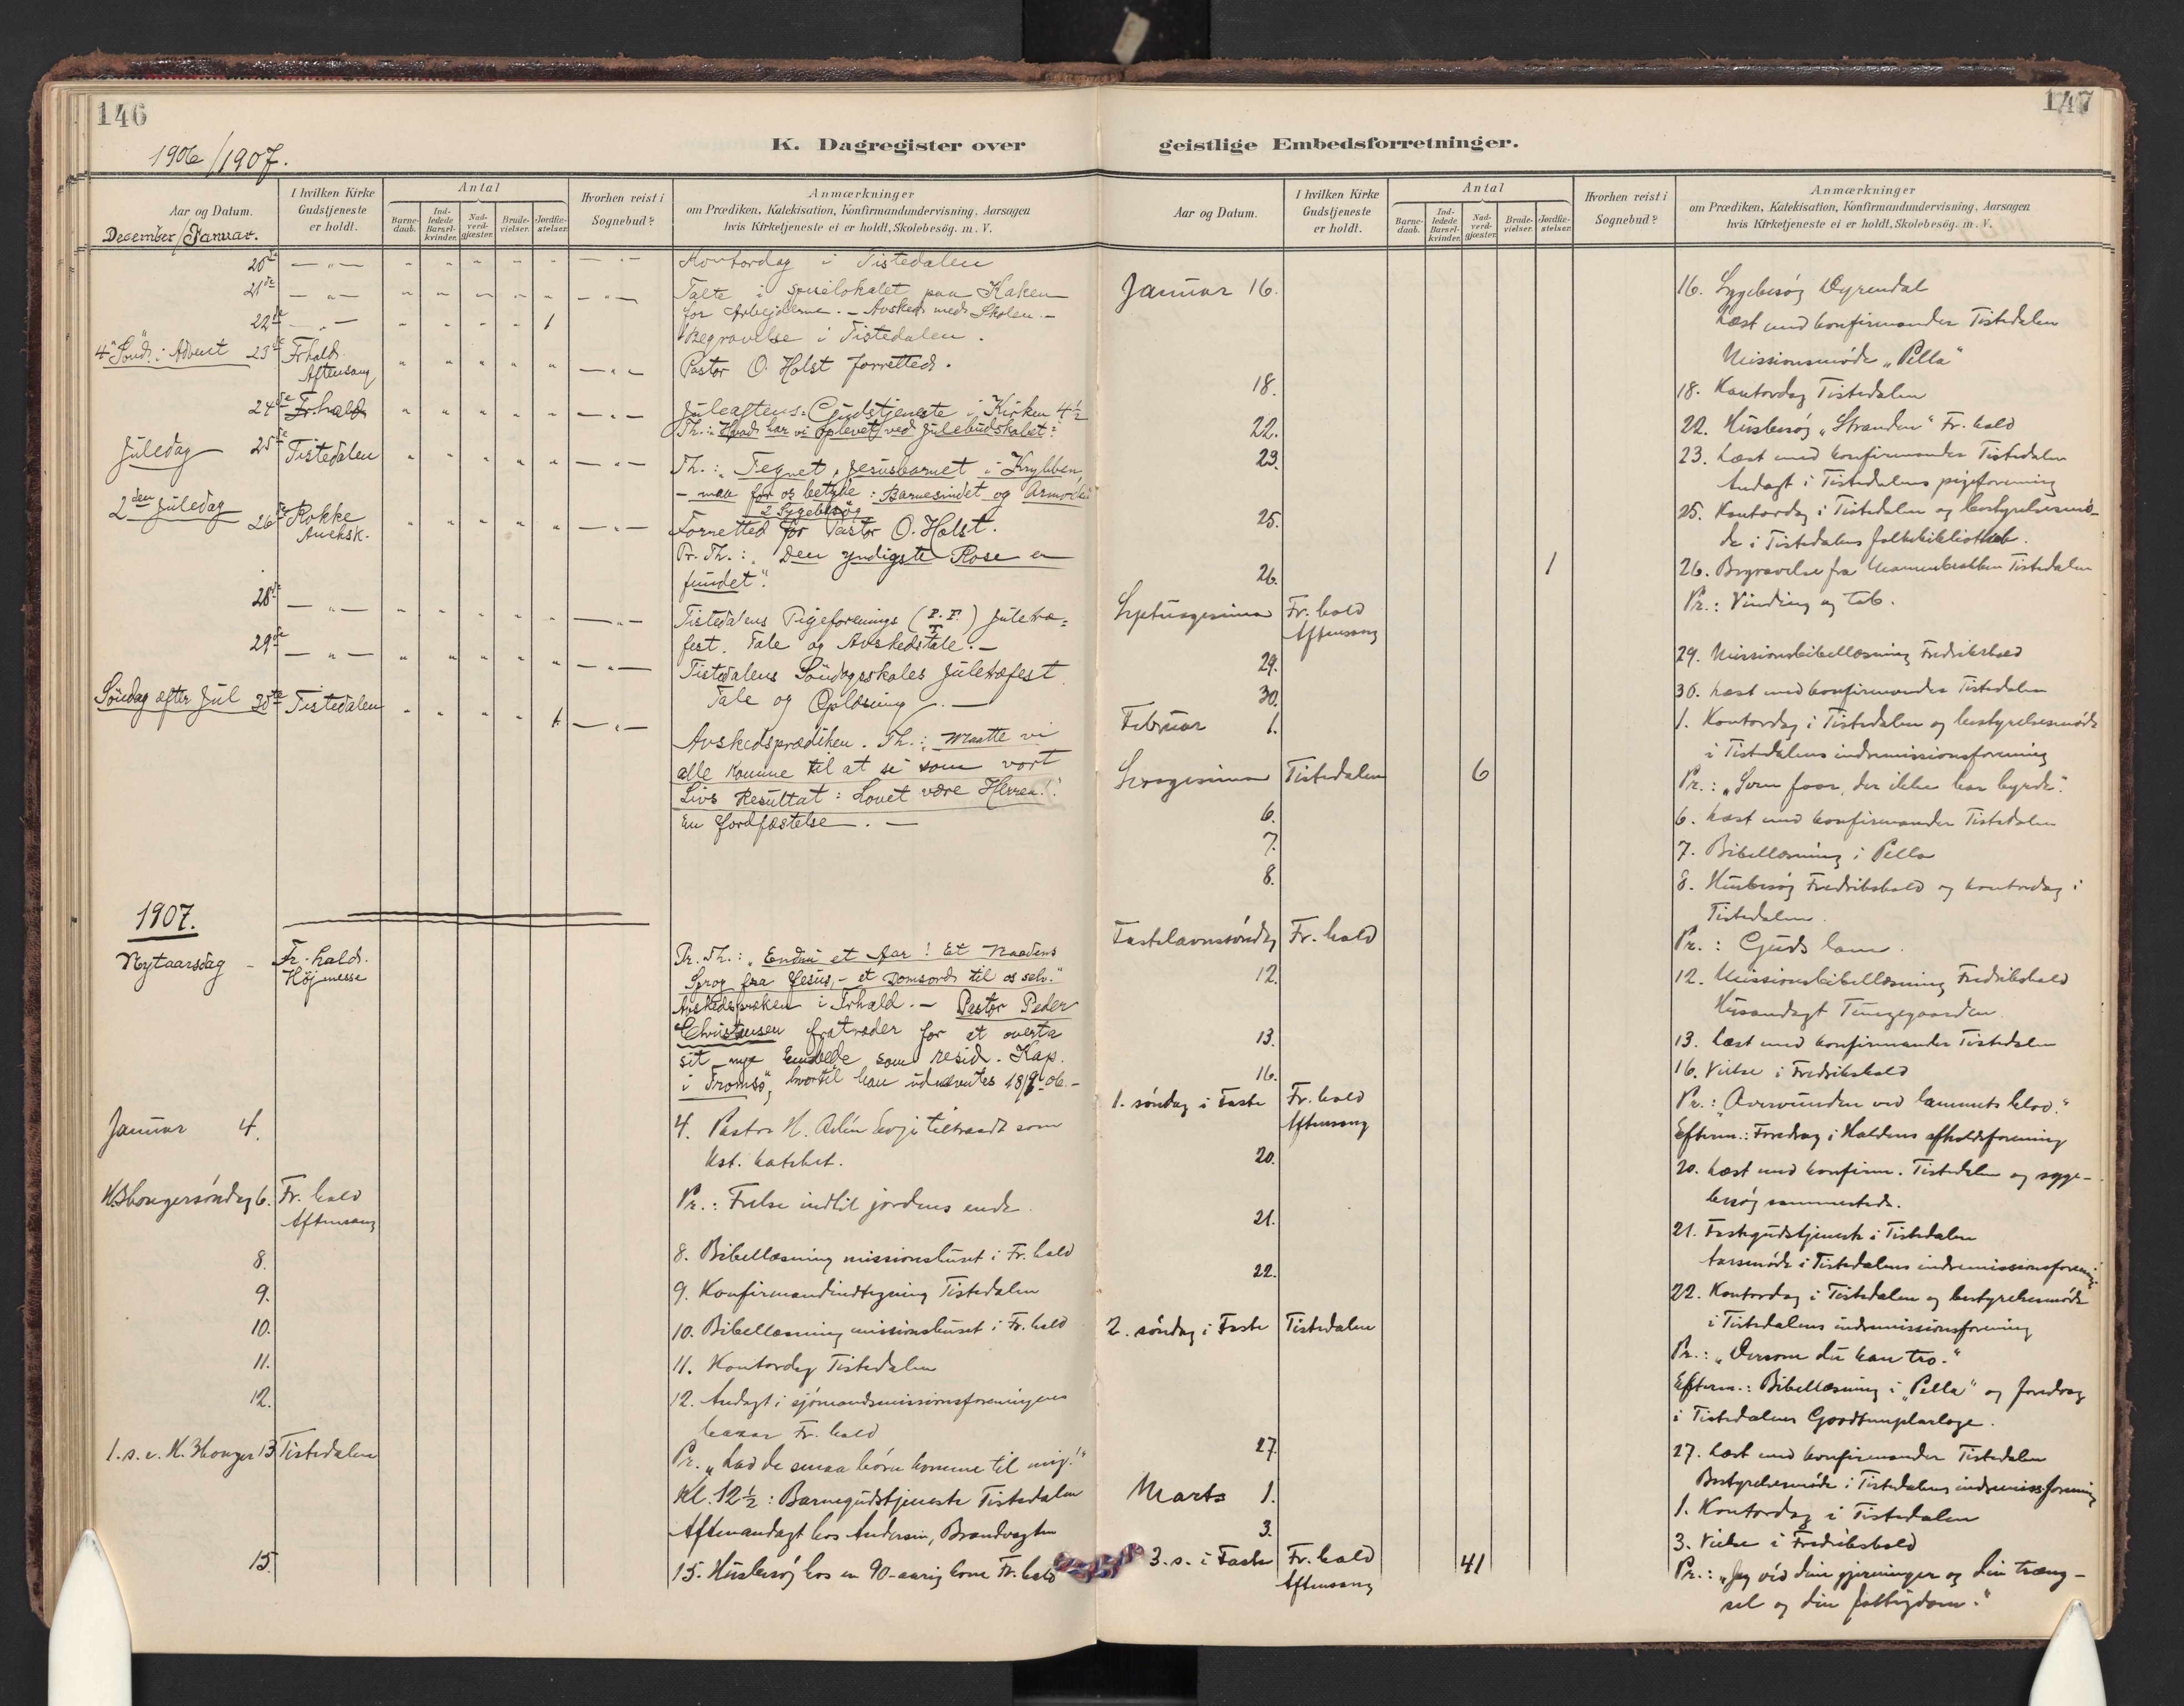 146
1906/1907.
K. Dagregister over
Aar og Datum.
December/Januar.
I hvilken Kirke
Gudstjeneste
er holdt.
Antal
Barne-
daab.
Ind-
ledede
Barsel-
kvinder.
Nad-
verd-
gjæster.
Brude-
vielser.
Jordfæ-
stelser.
Hvorhen reist i
Sognebud?
Anmærkninger
om Prædiken, Katekisation, Konfirmandundervisning, Aarsagen
hvis Kirketjeneste ei er holdt, Skolebesøg. m. V.
20de — „ — Kontordag i Tistedalen
21de — „ — Talte i Spiselokalet paa Kaken
for Arbejderne. – Avsked med Skolen. –
22de — „ — 1 Begravelse i Tistedalen.
4de Sönd. i Advent 23de Frhald. Pastor O. Holst forretted.
Aftensang
24de Fr.hald Juleaftens-Gudstjeneste i Kirken 4½
Th.: Hvad har vi oplevet ved Julebudskabet?
Juledag 25de Tistedalen Th.: Tegnet, Jesusbarnet i Krybben
– maa for os betyde: Barnesindet og Armoden
2 Sygebesøg
2den Juledag 26de Rokke Forretted for Pastor O. Holst.
Aneksk. Pr. Th.: „Den yndigste Rose er
fundet“.
28de — „ — Tistedalens Pigeforenings (P.F.T.) Juletræ=
fest. Tale og Avskedstale. –
29de — „ — Tistedalens Söndagsskoles Juletræfest.
Tale og Oplæsning. –
Söndag efter Jul 30te Tistedalen 1. Avskedsprædiken. Th.: Maatte vi
alle komme til at se som vort
Livs Resultat: Lovet være Herren!“
En Jordfæstelse. —
1907.
Nytaarsdag – Fr.hald. Pr. Th.: „Endnu et Aar! Et Naadens
Höjmesse Sprog fra Jesus, – et Domsord til os selv.“
Avskedspræken i Frhald. – Pastor Peder
Christensen fratræder for at overta
sit nye Embede som resid. Kap.
i Tromsø, hvortil han udnævntes 18/9 06. –
Januar 4. 4. Pastor H. tiltraadt som
kst. katehet.
H.3kongersöndag 6. Fr. hald Pr.: Frelse indtil jordens ende.
Aftensang
8. 8. Bibellæsning missionshuset i Fr. hald
9. 9. Konfirmandindtegning Tistedalen
10. 10. Bibellæsning missionshuset i Fr. hald
11. 11. Kontordag Tistedalen
12. 12. Andagt i sjömandsmissionsforeningens
bazar Fr. hald
1. s. e. H. 3konger 13 Tistedalen Pr. „Lad de smaa börn komme til mig!“
Kl. 12½: Barnegudstjeneste Tistedalen
Aftenandagt hos Andersen, Brandvagten
15. 15. Husbesög hos en 90-aarig kone Fr. hald
147
geistlige Embedsforretninger.
Aar og Datum.
I hvilken Kirke
Gudstjeneste
er holdt.
Antal
Barne-
daab.
Ind-
ledede
Barsel-
kvinder.
Nad-
verd-
gjæster.
Brude-
vielser.
Jordfæ-
stelser.
Hvorhen reist i
Sognebud?
Anmærkninger
om Prædiken, Katekisation, Konfirmandundervisning, Aarsagen
hvis Kirketjeneste ei er holdt, Skolebesøg. m. V.
Januar 16. 16. Sygebesög Dyrendal
Læst med konfirmander Tistedalen
Missionsmöde „Pella“
18. 18. Kontordag Tistedalen
22. 22. Husbesög „Stranden“ Fr. hald
23. 23. Læst med konfirmander Tistedalen
Andagt i Tistedalens pigeforening
25. 25. Kontordag i Tistedalen og bestyrelsesmö-
de i Tistedalens folkebibliothek.
26. 1 26. Begravelse fra Tistedalen
Septuagesima Fr. hald Pr.: Vinding og tab.
Aftensang
29. 29. Missionsbibellæsning Fredrikshald
30. 30. Læst med konfirmander Tistedalen
Februar 1. 1. Kontordag i Tistedalen og bestyrelsesmöde
i Tistedalens indremissionsforening
Sexagesima Tistedalen 6 Pr.: „Som faar, der ikke har hyrde“.
6. 6. Læst med konfirmander Tistedalen
7. 7. Bibellæsning i Pella
8. 8. Husbesög Fredrikshald og kontordag i
Tistedalen.
Fastelavnssöndag Fr. hald Pr.: Guds lam.
12. 12. Missionsbibellæsning Fredrikshald
Husandagt
13. 13. Læst med konfirmander Tistedalen
16. 16. Vielse i Fredrikshald
1. söndag i Faste Fr. hald Pr.: „Overvunden ved lammets blod.“
Aftensang Efterm.: Foredrag i Haldens afholdsforening
20. 20. Læst med konfirm. Tistedalen og syge-
besög sammesteds.
21. 21. Fastegudstjeneste i Tistedalen
Aarsmöde i Tistedalens indremissionsforening
22. 22. Kontordag i Tistedalen og bestyrelsesmöde
i Tistedalens indremissionsforening
2. söndag i Faste Tistedalen Pr.: „Dersom du kan tro.“
Efterm.: Bibellæsning i „Pella“ og foredrag
i Tistedalens Goodtemplarloge.
27. 27. Læst med konfirmander Tistedalen
Bestyrelsesmöde i Tistedalens indremiss.forening
Marts 1. 1. Kontordag i Tistedalen
3. 3. Vielse i Fredrikshald
3. s. i Faste Fr. hald 41 Pr.: „Jeg ved dine gjerninger og din træng-
Aftensang sel og din fattigdom.“